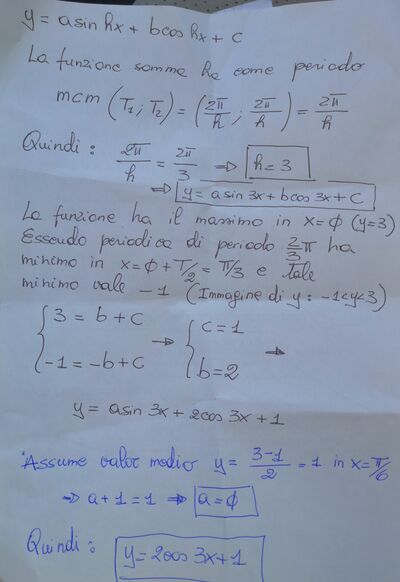 y = a sin hx + b cos hx + c
La funzione somma ha come periodo
mcm (T₁; T₂) = (2π/h ; 2π/h) = 2π/h
Quindi : 2π/h = 2π/3 ⇒ h = 3
⇒ y = a sin 3x + b cos 3x + c
La funzione ha il massimo in x = 0 (y=3)
Essendo periodica di periodo 2/3 π ha
minimo in x = 0 + T/2 = π/3 e tale
minimo vale -1 (Immagine di y : -1<y<3)
{ 3 = b + c → { c = 1
-1 = -b + c b = 2 →
y = a sin 3x + 2 cos 3x + 1
Assume valor medio y = 3-1/2 = 1 in x = π/6
→ a + 1 = 1 ⇒ a = 0
Quindi : y = 2 cos 3x + 1